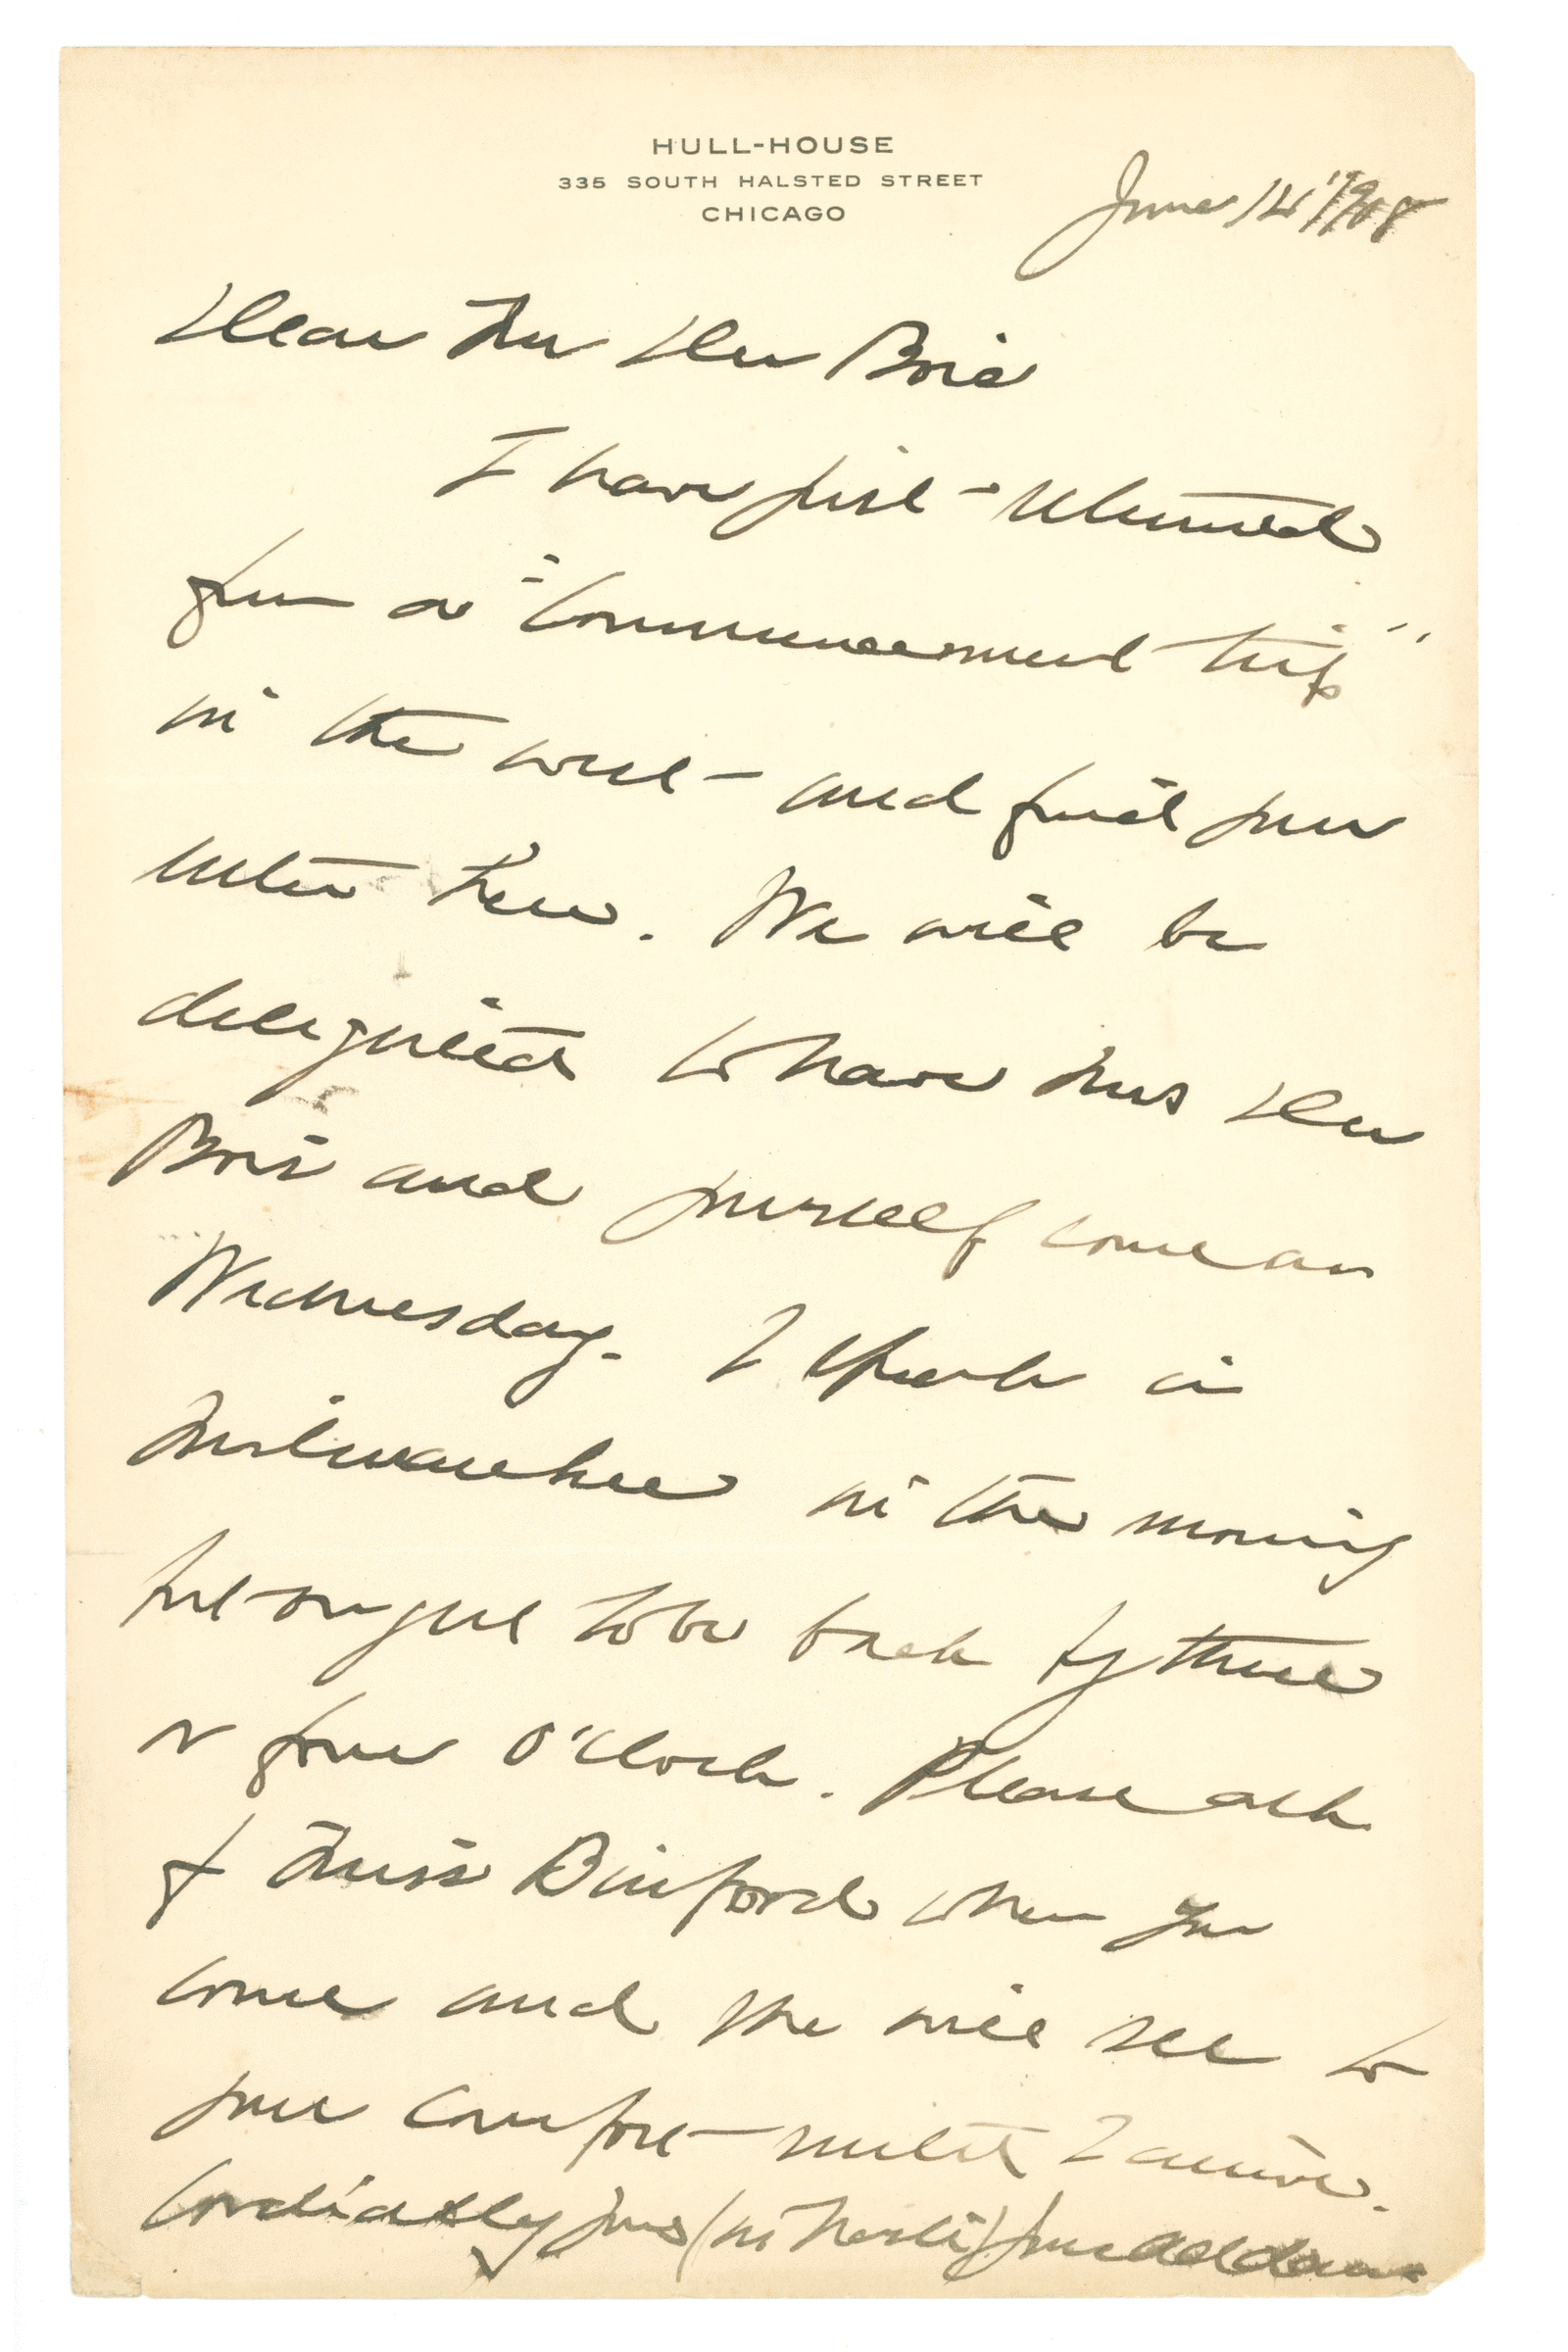 HULL-HOUSE
335 SOUTH HALSTED STREET
CHICAGO
June 14" 1908
Dear Mr Du Bois
I have just returned
from a "Commencement trip"
in the west - and find your
letter here. We will be
delighted to have Mrs Du
Bois and yourself come on
Wednesday. I speak in
Milwaukee in the morning
but to be back by three
or four o'clock. Please ask
for Miss Binford when you
come and she will see to
your comfort - until I arrive.
Cordially yours (in haste) Jane Addams